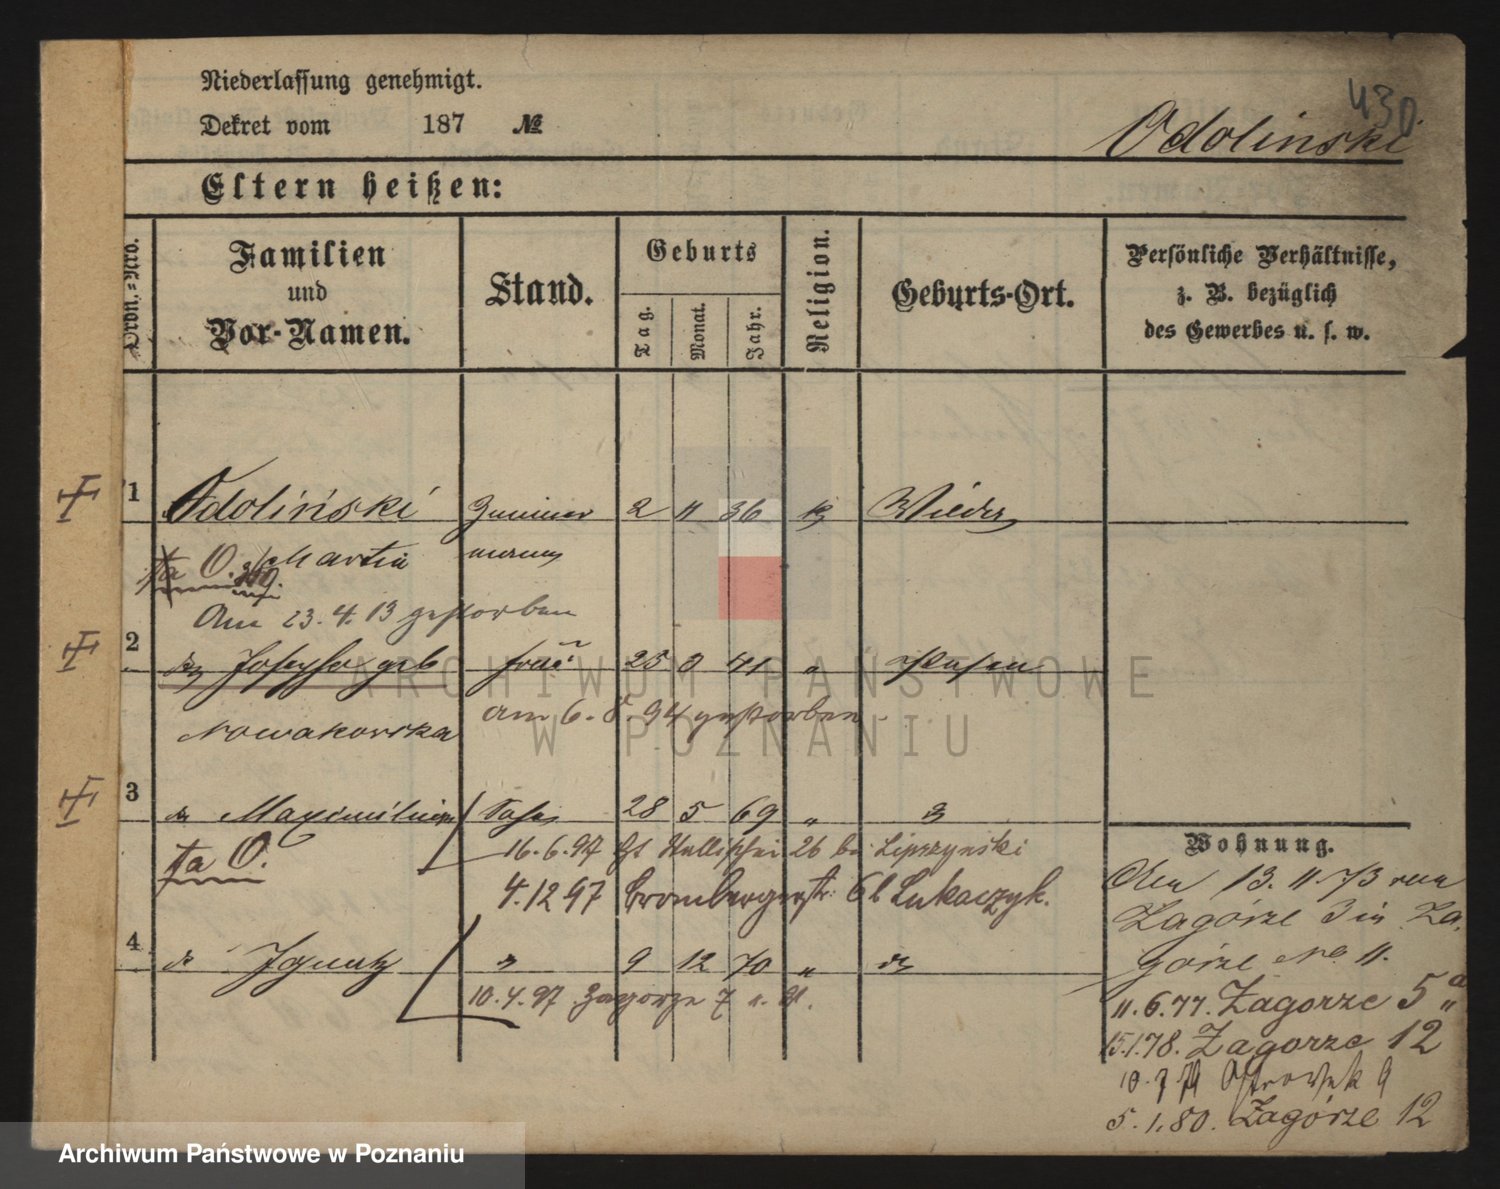 Niederlassung genehmigt.
430
Dekret vom 187 №
Odolinski
Eltern heißen:
Ordn.=Nro.
Familien und Vor-Namen.
Stand.
Geburts
Tag.
Monat.
Jahr.
Religion.
Geburts-Ort.
Persönliche Verhältnisse,
z. B. bezüglich
des Gewerbes u. s. w.
1 Odoliński Zimmer 2 11 36
Martin
Am 23.4.13 gestorben
2 Josepha geb Frau 25 41 " Posen
am 6. 8. 94 gestorben
Nowakowska
3 Maximilian 28 5 69 "
Wohnung.
16.6.97 26 bei Lipczynski
4.12 97 Brombergerstr. 6 b Lukaczyk.
4 Ignatz " 9 12 70 "
10.4.97 Zagorze 7
13. 11. 73 von
Zagórze 3 in Za-
górze No 11.
11.6.77. Zagorze 5 a
15.1.78. Zagorze 12
10.7 79 Ostrowek 9
5.1.80. Zagórze 12
ARCHIWUM PAŃSTWOWE
W POZNANIU
Archiwum Państwowe w Poznaniu